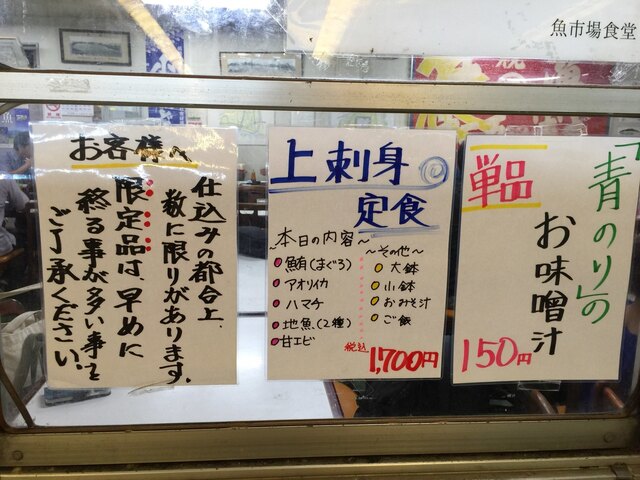 魚市場食堂
お客様へ
仕込みの都合上、
数に限りがあります。
限定品は早めに
終る事が多い事を
ご了承ください。
上刺身
定食
～本日の内容～
鮪(まぐろ)
アオリイカ
ハマチ
地魚(2種)
甘エビ
～その他～
大鉢
小鉢
おみそ汁
ご飯
税込1,700円
単品
「青のり」の
お味噌汁
150円